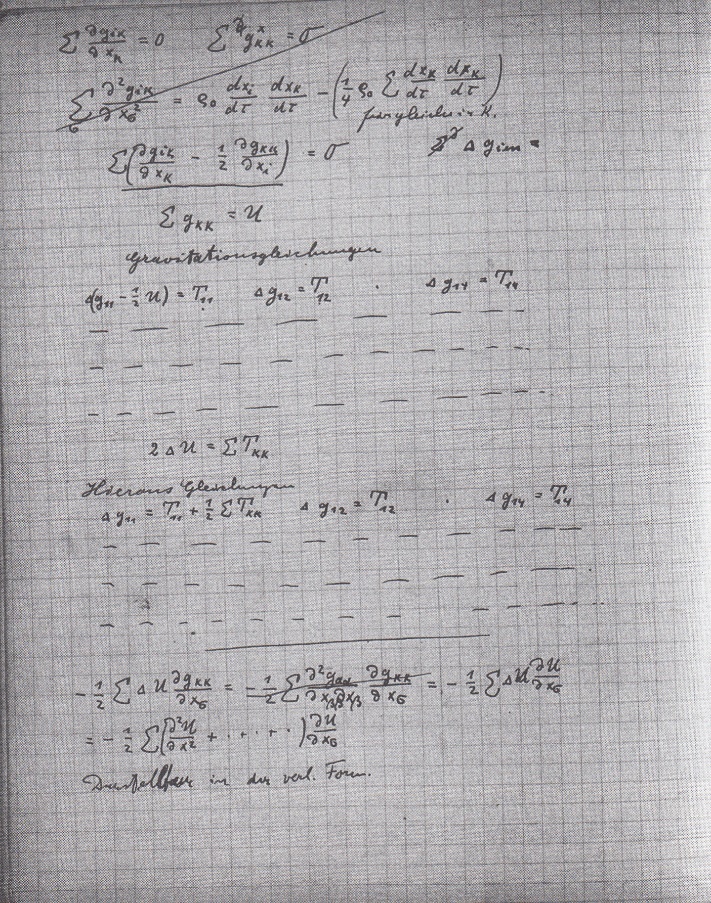 ∑ ∂g_iκ/∂x_κ = 0   ∑ g_κκ^x = 0
∑_σ ∂²g_iκ/∂x_σ² = ρ₀ dx_i/dτ dx_κ/dτ − (1/4 ρ₀ ∑ dx_κ/dτ dx_κ/dτ)
für gleiche i u. κ.
∑(∂g_iκ/∂x_κ − 1/2 ∂g_κκ/∂x_i) = 0   Δ g_im =
∑ g_κκ = U
Gravitationsgleichungen
Δ(g₁₁ − 1/2 U) = T₁₁   Δ g₁₂ = T₁₂   ·   Δ g₁₄ = T₁₄
2 Δ U = ∑ T_κκ
Hieraus Gleichungen
Δ g₁₁ = T₁₁ + 1/2 ∑ T_κκ   Δ g₁₂ = T₁₂   ·   Δ g₁₄ = T₁₄
− 1/2 ∑ Δ U ∂g_κκ/∂x_σ = − 1/2 ∑ ∂²g_αα/∂x_β∂x_β ∂g_κκ/∂x_σ = − 1/2 ∑ Δ U ∂U/∂x_σ
= − 1/2 ∑(∂²U/∂x² + · · · + ·) ∂U/∂x_σ
Darstellbar in der verl. Form.